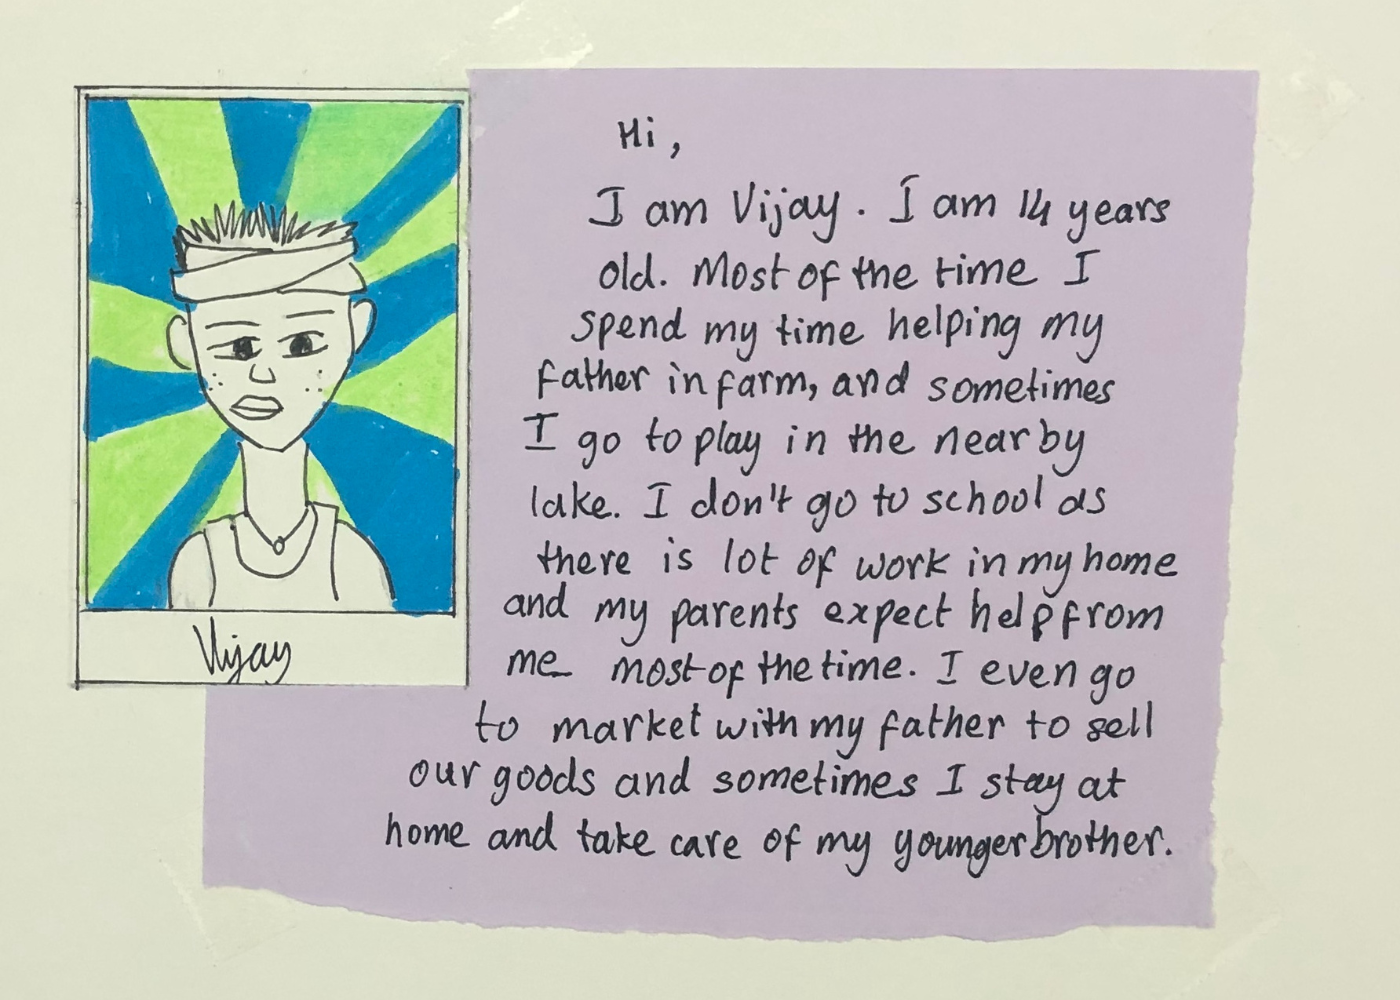 Hi,
I am Vijay. I am 14 years
old. Most of the time I
spend my time helping my
father in farm, and sometimes
I go to play in the near by
lake. I don't go to school as
there is lot of work in my home
and my parents expect help from
me most of the time. I even go
to market with my father to sell
our goods and sometimes I stay at
home and take care of my younger brother.
Vijay